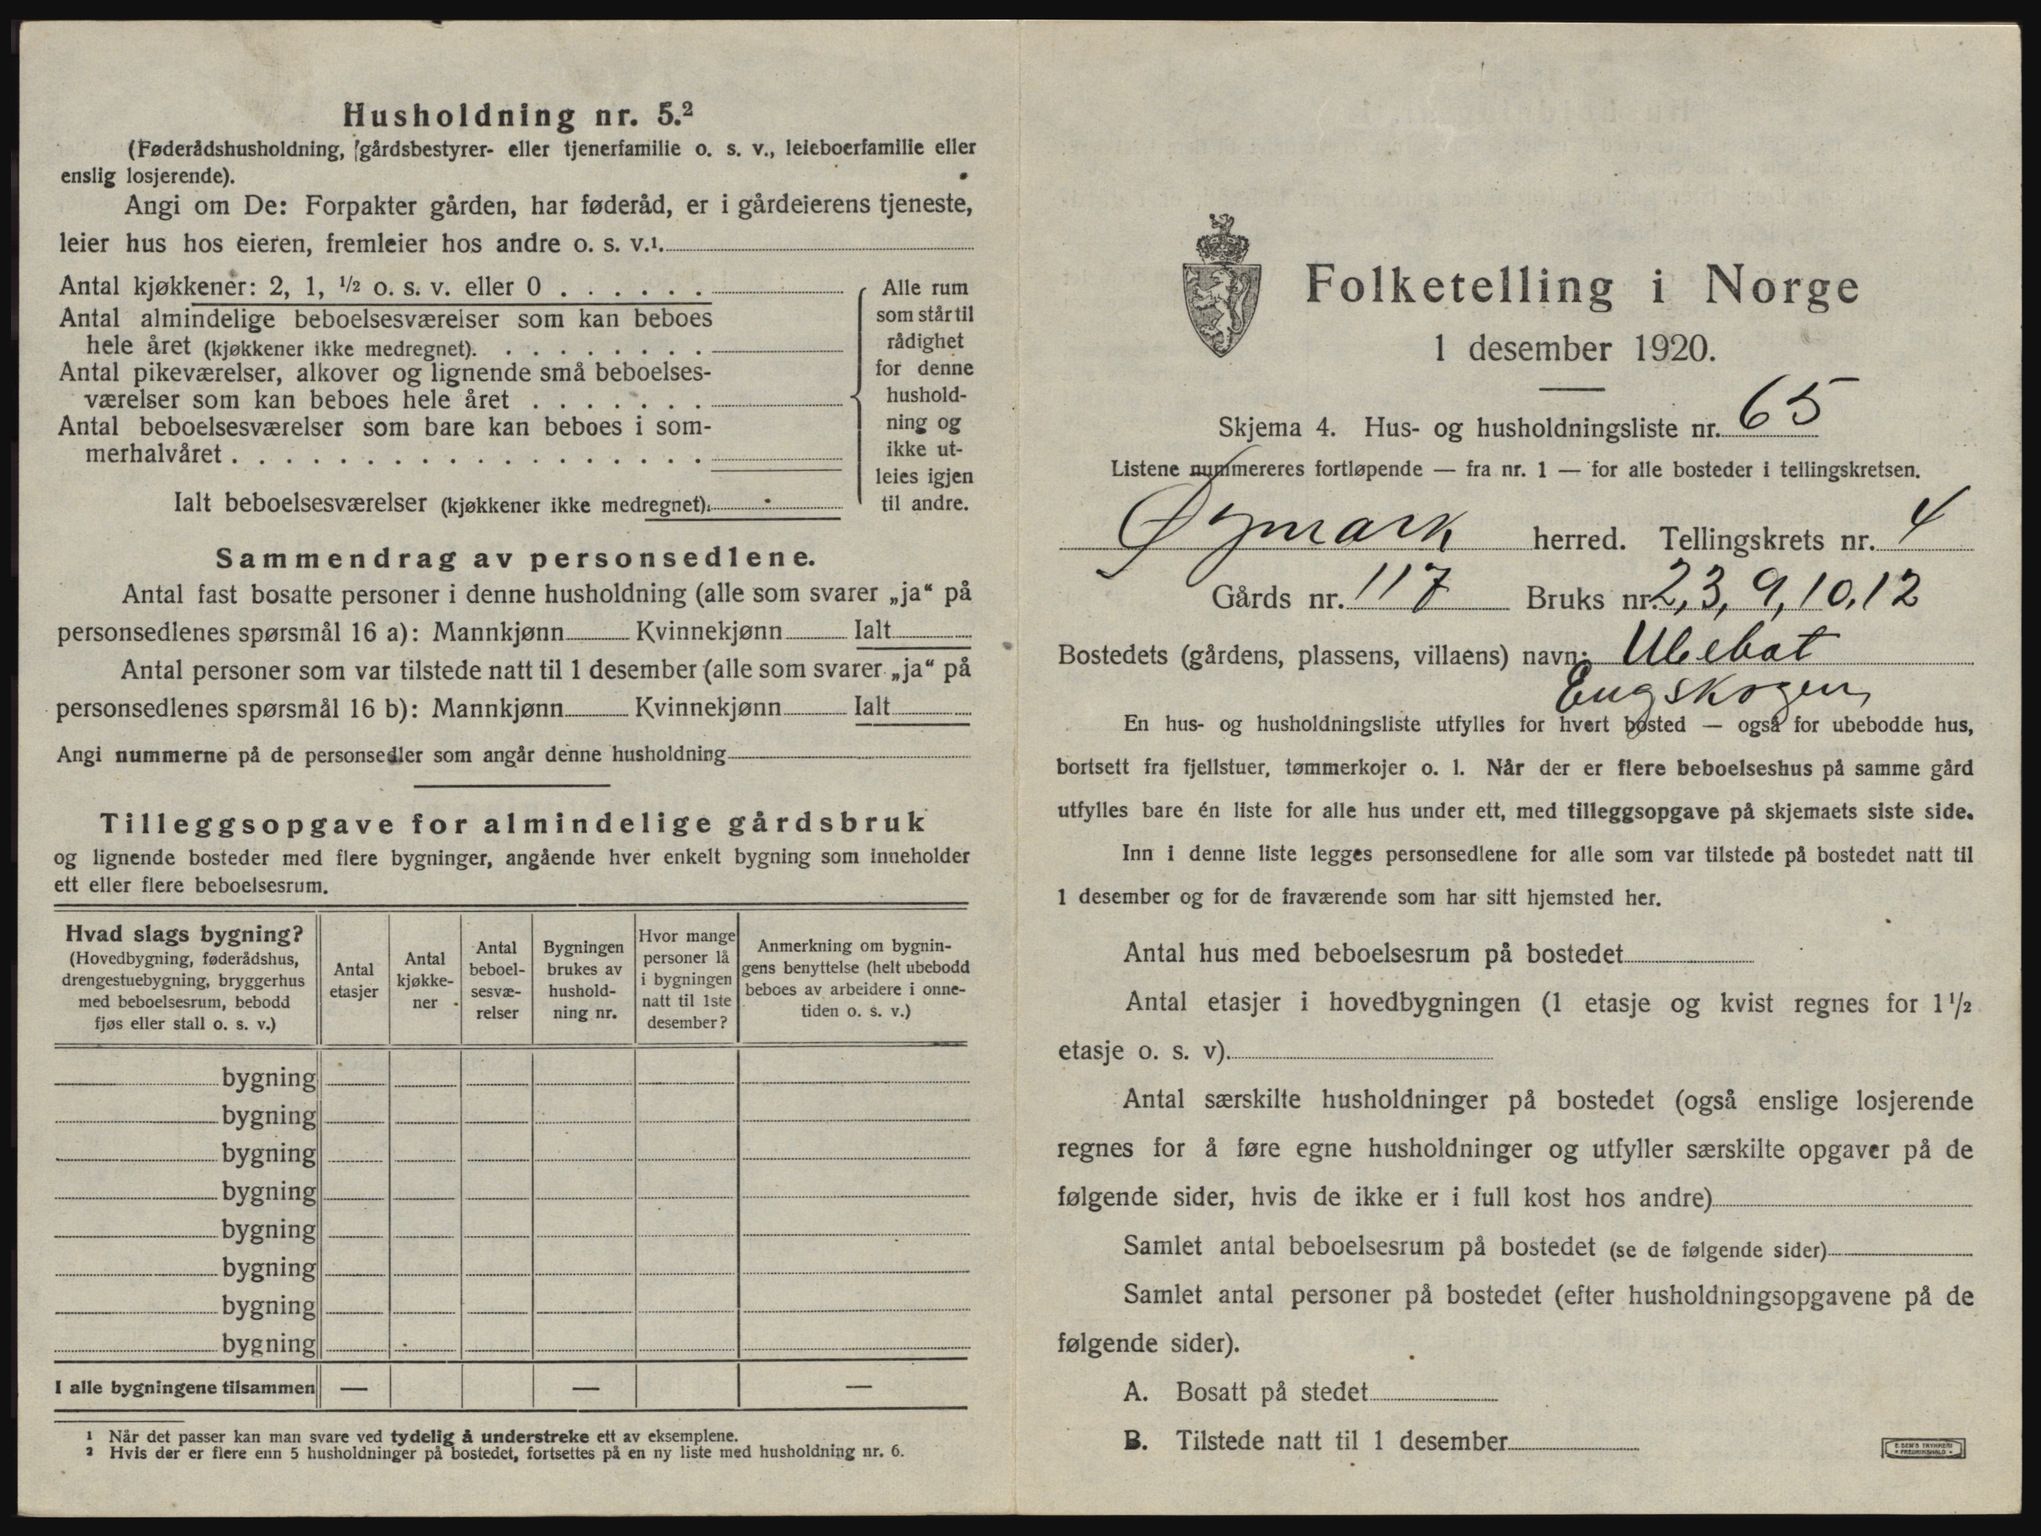 Husholdning nr. 5.²
(Føderådshusholdning, gårdsbestyrer- eller tjenerfamilie o. s. v., leieboerfamilie eller
enslig losjerende).
Angi om De: Forpakter gården, har føderåd, er i gårdeierens tjeneste,
leier hus hos eieren, fremleier hos andre o. s. v.¹
Antal kjøkkener: 2, 1, ½ o. s. v. eller 0 . . . . . .
Antal almindelige beboelsesværelser som kan beboes
hele året (kjøkkener ikke medregnet). . . . . . . . .
Antal pikeværelser, alkover og lignende små beboelses-
værelser som kan beboes hele året . . . . . . .
Antal beboelsesværelser som bare kan beboes i som-
merhalvåret . . . . . . . . . . . . . . . . . .
Ialt beboelsesværelser (kjøkkener ikke medregnet).
Alle rum
som står til
rådighet
for denne
hushold-
ning og
ikke ut-
leies igjen
til andre.
Sammendrag av personsedlene.
Antal fast bosatte personer i denne husholdning (alle som svarer „ja“ på
personsedlenes spørsmål 16 a): Mannkjønn Kvinnekjønn Ialt
Antal personer som var tilstede natt til 1 desember (alle som svarer „ja“ på
personsedlenes spørsmål 16 b): Mannkjønn Kvinnekjønn Ialt
Angi nummerne på de personsedler som angår denne husholdning
Tilleggsopgave for almindelige gårdsbruk
og lignende bosteder med flere bygninger, angående hver enkelt bygning som inneholder
ett eller flere beboelsesrum.
Hvad slags bygning?
(Hovedbygning, føderådshus,
drengestuebygning, bryggerhus
med beboelsesrum, bebodd
fjøs eller stall o. s. v.)
Antal
etasjer
Antal
kjøkke-
ner
Antal
beboel-
sesvæ-
relser
Bygningen
brukes av
hushold-
ning nr.
Hvor mange
personer lå
i bygningen
natt til 1ste
desember?
Anmerkning om bygnin-
gens benyttelse (helt ubebodd
beboes av arbeidere i onne-
tiden o. s. v.)
bygning
bygning
bygning
bygning
bygning
bygning
bygning
bygning
I alle bygningene tilsammen — — —
¹ Når det passer kan man svare ved tydelig å understreke ett av eksemplene.
² Hvis der er flere enn 5 husholdninger på bostedet, fortsettes på en ny liste med husholdning nr. 6.
Folketelling i Norge
1 desember 1920.
Skjema 4. Hus- og husholdningsliste nr. 65
Listene nummereres fortløpende — fra nr. 1 — for alle bosteder i tellingskretsen.
Øymark herred. Tellingskrets nr. 4
Gårds nr. 117 Bruks nr. 2, 3, 9, 10, 12
Bostedets (gårdens, plassens, villaens) navn: Ubebot
Engskogen
En hus- og husholdningsliste utfylles for hvert bosted — også for ubebodde hus,
bortsett fra fjellstuer, tømmerkojer o. l. Når der er flere beboelseshus på samme gård
utfylles bare én liste for alle hus under ett, med tilleggsopgave på skjemaets siste side.
Inn i denne liste legges personsedlene for alle som var tilstede på bostedet natt til
1 desember og for de fraværende som har sitt hjemsted her.
Antal hus med beboelsesrum på bostedet
Antal etasjer i hovedbygningen (1 etasje og kvist regnes for 1½
etasje o. s. v).
Antal særskilte husholdninger på bostedet (også enslige losjerende
regnes for å føre egne husholdninger og utfyller særskilte opgaver på de
følgende sider, hvis de ikke er i full kost hos andre)
Samlet antal beboelsesrum på bostedet (se de følgende sider)
Samlet antal personer på bostedet (efter husholdningsopgavene på de
følgende sider).
A. Bosatt på stedet
B. Tilstede natt til 1 desember
E. SEM'S TRYKKERI
• FREDRIKSHALD •